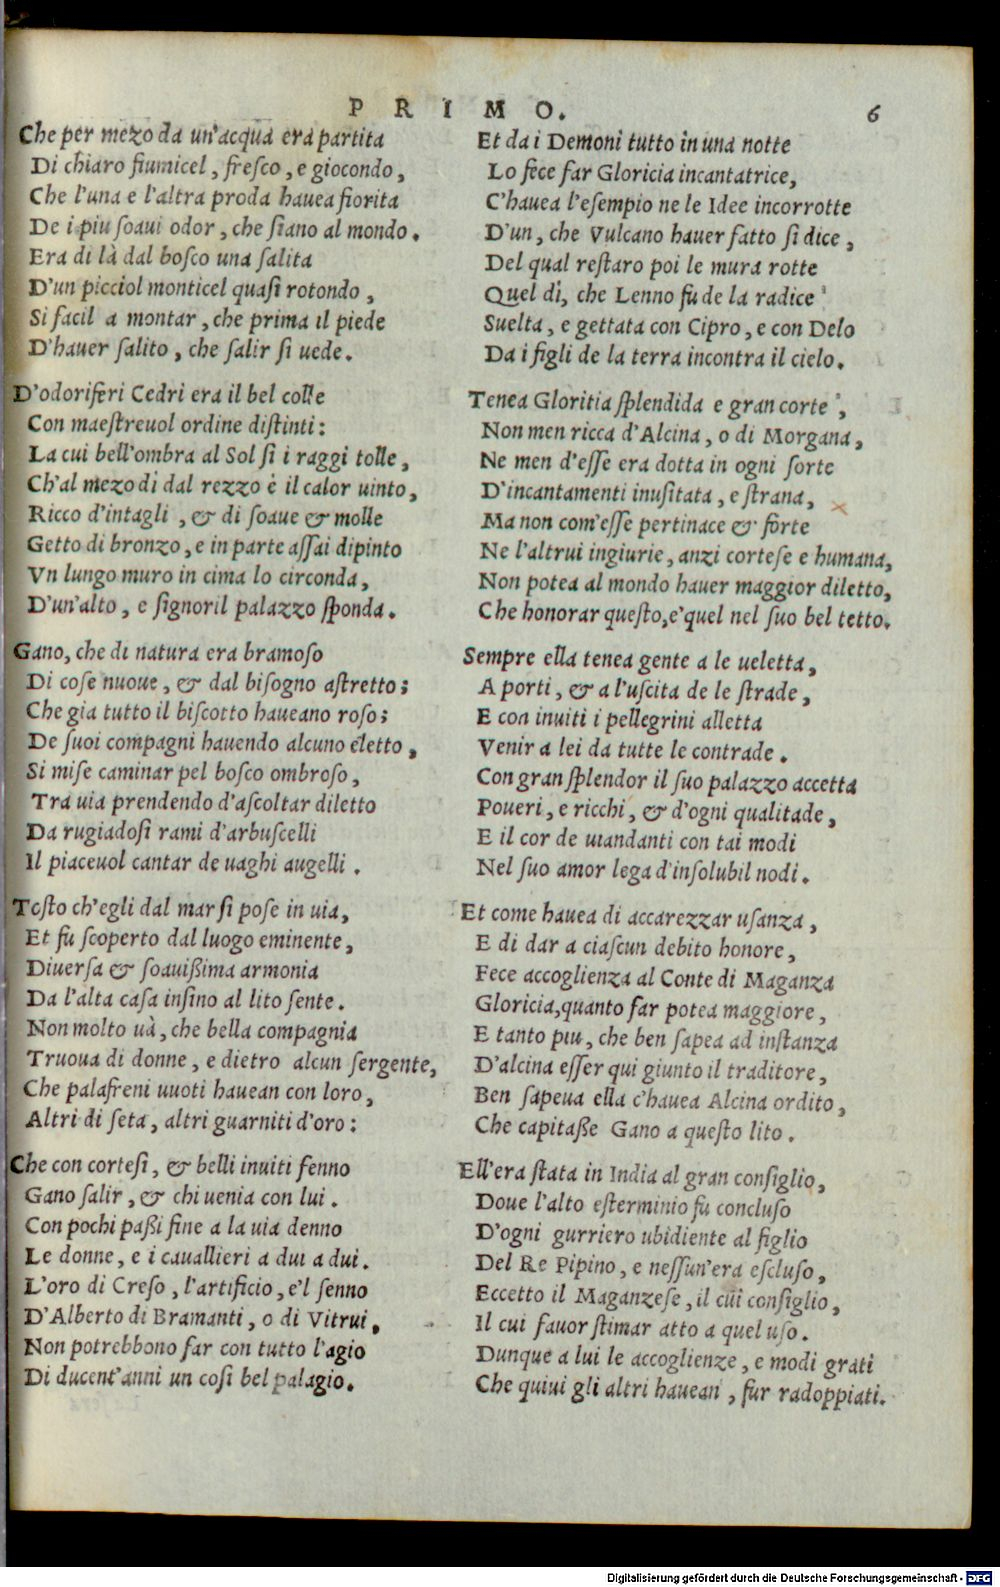 PRIMO. 6
Che per mezo da un'acqua era partita
Di chiaro fiumicel, fresco, e giocondo,
Che l'una e l'altra proda hauea fiorita
De i piu soaui odor, che siano al mondo.
Era di là dal bosco una salita
D'un picciol monticel quasi rotondo,
Si facil a montar, che prima il piede
D'hauer salito, che salir si uede.
D'odoriferi Cedri era il bel colle
Con maestreuol ordine distinti:
La cui bell'ombra al Sol si i raggi tolle,
Ch'al mezodi dal rezzo è il calor uinto,
Ricco d'intagli, & di soaue & molle
Getto di bronzo, e in parte assai dipinto
Vn lungo muro in cima lo circonda,
D'un'alto, e signoril palazzo sponda.
Gano, che di natura era bramoso
Di cose nuoue, & dal bisogno astretto;
Che gia tutto il biscotto haueano roso;
De suoi compagni hauendo alcuno eletto,
Si mise caminar pel bosco ombroso,
Tra uia prendendo d'ascoltar diletto
Da rugiadosi rami d'arbuscelli
Il piaceuol cantar de uaghi augelli.
Tosto ch'egli dal mar si pose in uia,
Et fu scoperto dal luogo eminente,
Diuersa & soauißima armonia
Da l'alta casa insino al lito sente.
Non molto uà, che bella compagnia
Truoua di donne, e dietro alcun sergente,
Che palafreni uuoti hauean con loro,
Altri di seta, altri guarniti d'oro:
Che con cortesi, & belli inuiti fenno
Gano salir, & chi uenia con lui.
Con pochi paßi fine a la uia denno
Le donne, e i cauallieri a dui a dui.
L'oro di Creso, l'artificio, e'l senno
D'Alberto di Bramanti, o di Vitrui,
Non potrebbono far con tutto l'agio
Di ducent'anni un cosi bel palagio.
Et da i Demoni tutto in una notte
Lo fece far Gloricia incantatrice,
C'hauea l'esempio ne le Idee incorrotte
D'un, che Vulcano hauer fatto si dice,
Del qual restaro poi le mura rotte
Quel di, che Lenno fu de la radice
Suelta, e gettata con Cipro, e con Delo
Da i figli de la terra incontra il cielo.
Tenea Gloritia splendida e gran corte,
Non men ricca d'Alcina, o di Morgana,
Ne men d'esse era dotta in ogni sorte
D'incantamenti inusitata, e strana,
Ma non com'esse pertinace & forte
Ne l'altrui ingiurie, anzi cortese e humana,
Non potea al mondo hauer maggior diletto,
Che honorar questo, e'quel nel suo bel tetto.
Sempre ella tenea gente a le ueletta,
A porti, & a l'uscita de le strade,
E con inuiti i pellegrini alletta
Venir a lei da tutte le contrade.
Con gran splendor il suo palazzo accetta
Poueri, e ricchi, & d'ogni qualitade,
E il cor de uiandanti con tai modi
Nel suo amor lega d'insolubil nodi.
Et come hauea di accarezzar usanza,
E di dar a ciascun debito honore,
Fece accoglienza al Conte di Maganza
Gloricia, quanto far potea maggiore,
E tanto piu, che ben sapea ad instanza
D'alcina esser qui giunto il traditore,
Ben sapeua ella c'hauea Alcina ordito,
Che capitaße Gano a questo lito.
Ell'era stata in India al gran consiglio,
Doue l'alto esterminio fu concluso
D'ogni gurriero ubidiente al figlio
Del Re Pipino, e nessun'era escluso,
Eccetto il Maganzese, il cui consiglio,
Il cui fauor stimar atto a quel uso.
Dunque a lui le accoglienze, e modi grati
Che quiui gli altri hauean, fur radoppiati.
Digitalisierung gefördert durch die Deutsche Forschungsgemeinschaft - DFG